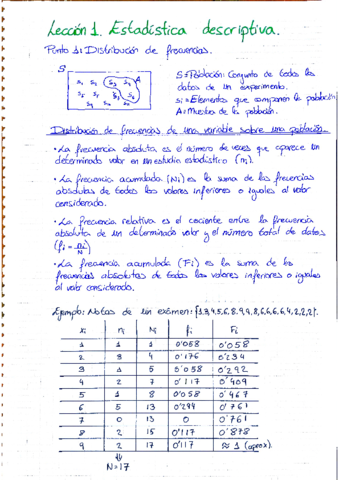 Lección 1. Estadística descriptiva.
Punto 1: Distribución de frecuencias.
S
A
S=Población: Conjunto de todos los
datos de un experimento.
si=Elementos que componen la población
A=Muestra de la población.
Distribución de frecuencias de una variable sobre una población.
• La frecuencia absoluta, es el número de veces que aparece un
determinado valor en un estudio estadístico (ni).
• La frecuencia acumulada (Ni) es la suma de las frecuencias
absolutas de todos los valores inferiores o iguales al valor
considerado.
• La frecuencia relativa es el cociente entre la frecuencia
absoluta de un determinado valor y el número total de datos
(fi = ni/N)
• La frecuencia acumulada (Fi) es la suma de las
frecuencias absolutas de todos los valores inferiores o iguales
al valor considerado.
Ejemplo: Notas de un exámen: {1,3,4,5,6,8,9,9,8,6,6,6,6,4,2,2,2}.
xi ni Ni fi Fi
1 1 1 0'058 0'058
2 3 4 0'176 0'234
3 1 5 0'058 0'292
4 2 7 0'117 0'409
5 1 8 0'058 0'467
6 5 13 0'294 0'761
7 0 13 0 0'761
8 2 15 0'117 0'878
9 2 17 0'117 ≈ 1 (aprox).
⇓
N=17